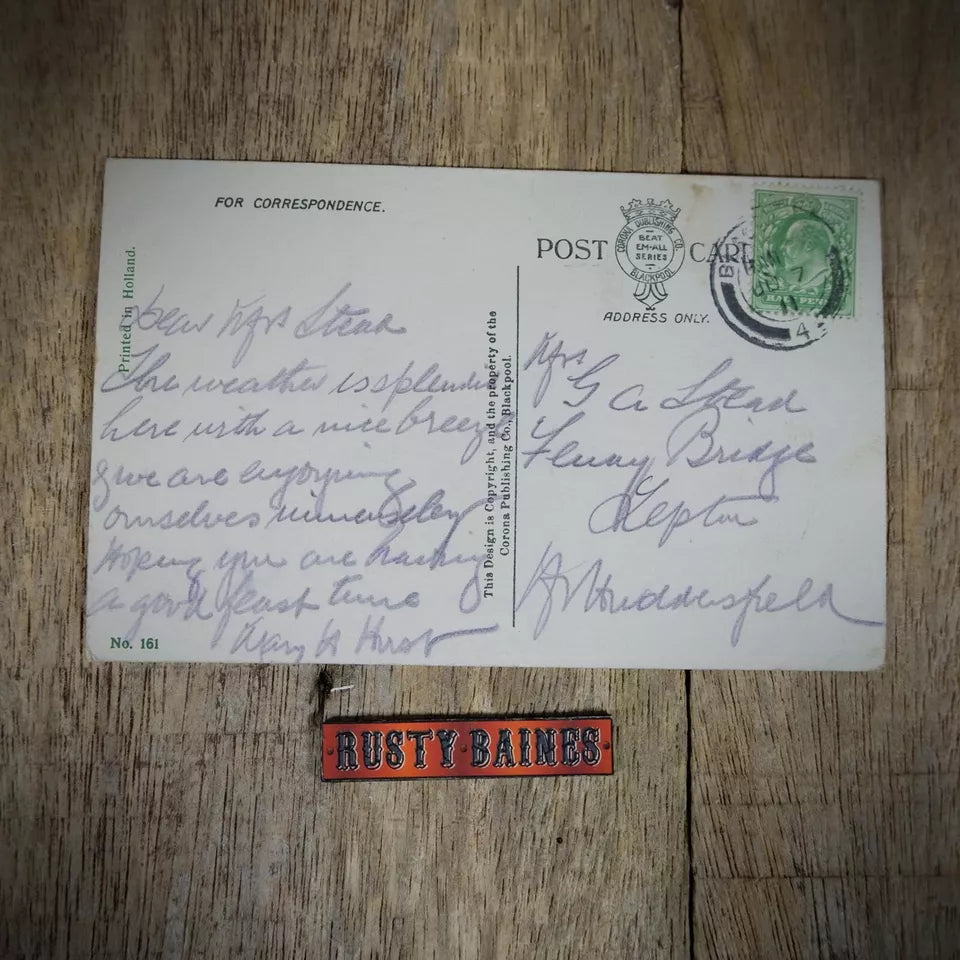 FOR CORRESPONDENCE.
Printed in Holland.
Dear Mrs Stead
The weather is splendid
here with a nice breeze
& we are enjoying
ourselves immensely
Hoping you are having
a good feast time
Mary H Hirst
No. 161
This Design is Copyright, and the property of the
Corona Publishing Co., Blackpool.
POST CARD
CORONA PUBLISHING CO.
BEAT
EM-ALL
SERIES
BLACKPOOL
ADDRESS ONLY.
Mrs
G A Stead
Fenay Bridge
Lepton
Nr Huddersfield
HALFPENNY
7
11
4
RUSTY·BAINES